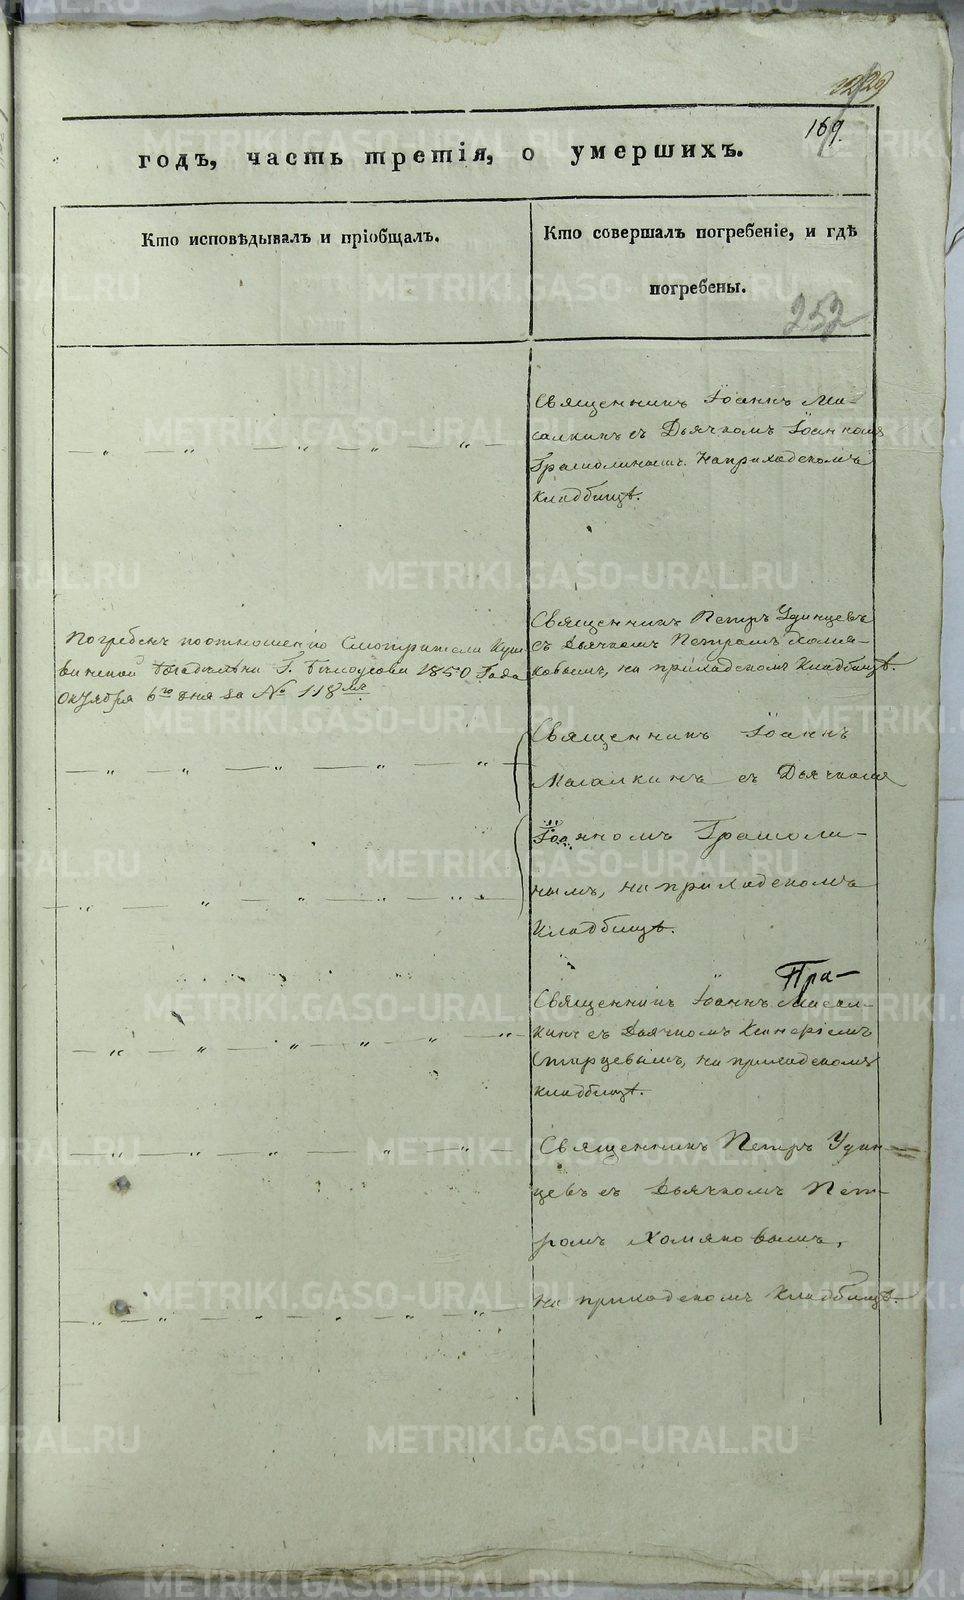 169.
годъ, часть третія, о умершихъ.
Кто исповѣдывалъ и пріобщалъ.
Кто совершалъ погребеніе, и гдѣ
погребены.
252
Священникъ Іоаннъ Ма-
салкинъ съ Дьячкомъ Іоанномъ
на приходскомъ
кладбищѣ.
Погребенъ по отношенію Смотрителя Куш
винской Богадѣльни Г. Бѣлоусова 1850 Года
Октября 6го дня за № 118мъ
Священникъ Петръ Удинцевъ
съ Дьячкомъ Петромъ Хомя-
ковымъ, на приходскомъ Кладбищѣ.
Священникъ Іоаннъ
Масалкинъ съ Дьячкомъ
Іоанномъ
нымъ, на приходскомъ
Кладбищѣ.
Пра-
Священникъ Іоаннъ Масал-
кинъ съ Дьячкомъ
Старцевымъ, на приходскомъ
кладбищѣ.
Священникъ Петръ Удин-
цевъ съ Дьячкомъ Пет-
ромъ Хомяковымъ,
на приходскомъ Кладбищѣ.
METRIKI.GASO-URAL.RU